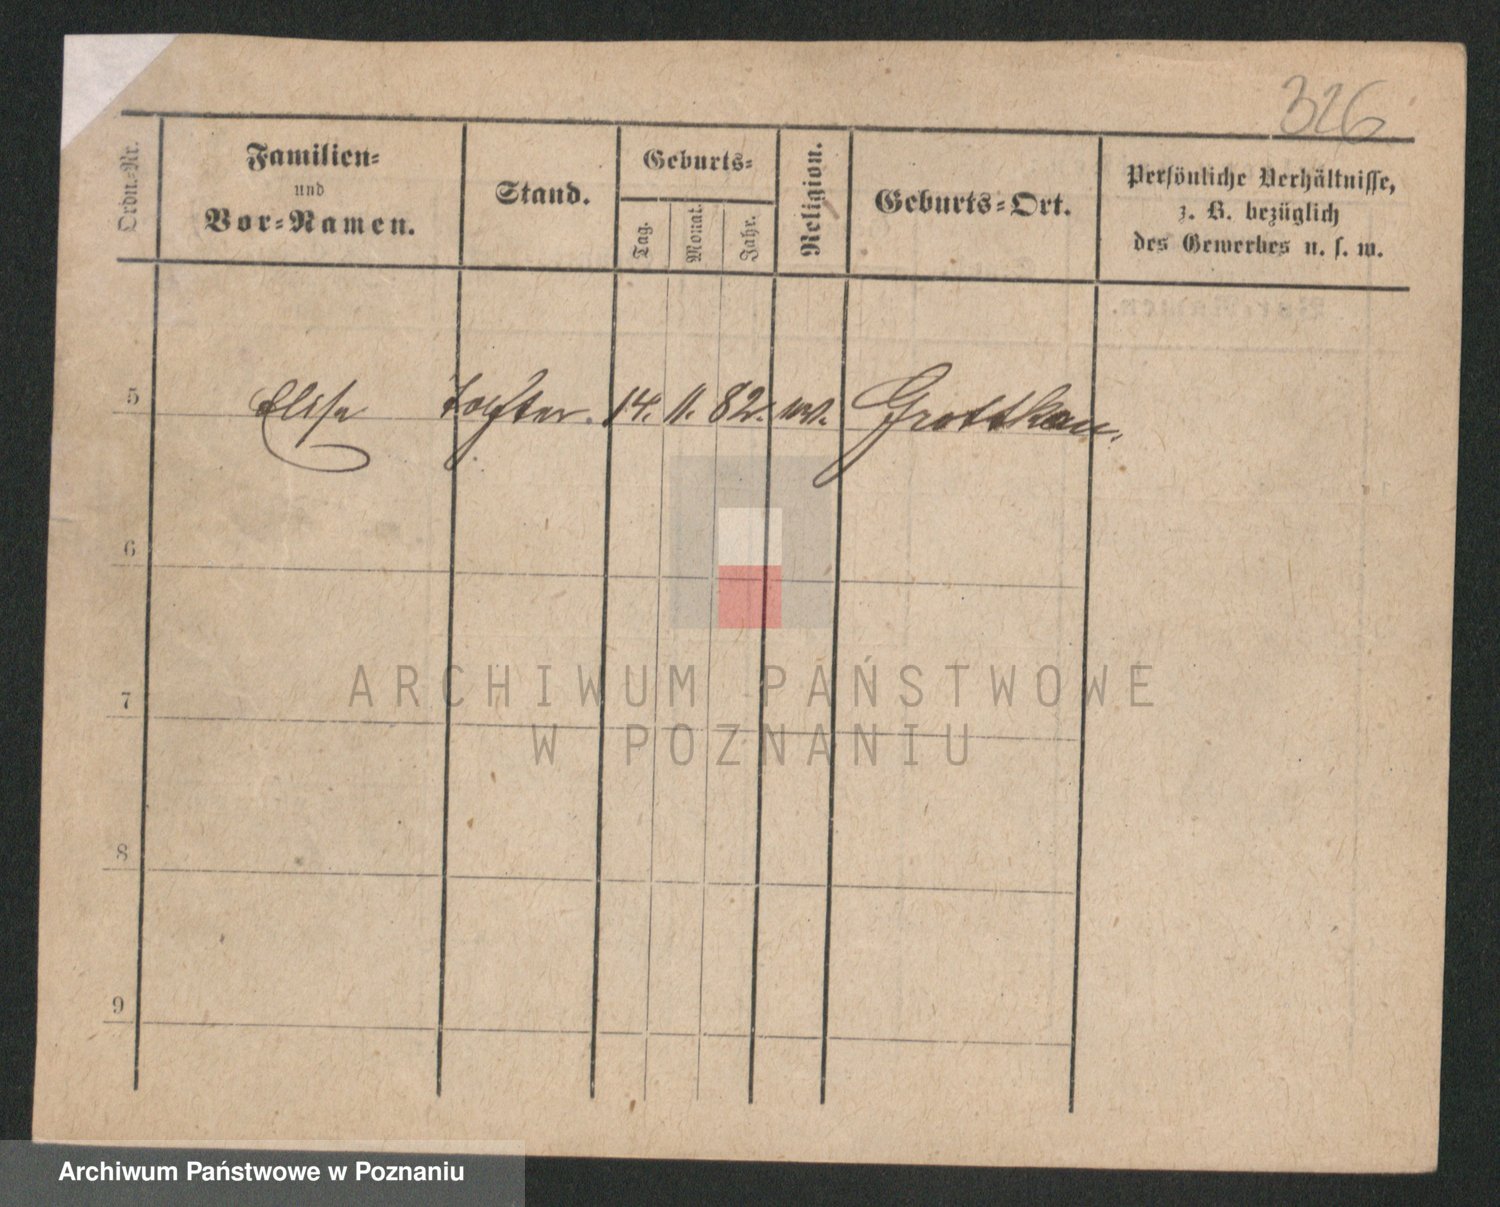 326
Ordn.-Nr.
Familien-
und
Vor-Namen.
Stand.
Geburts-
Tag.
Monat.
Jahr.
Religion.
Geburts-Ort.
Persönliche Verhältnisse,
z. B. bezüglich
des Gewerbes u. s. w.
5 Elise Tochter. 14. 11. 82. Grottkau.
6
7
8
9
ARCHIWUM PAŃSTWOWE
W POZNANIU
Archiwum Państwowe w Poznaniu